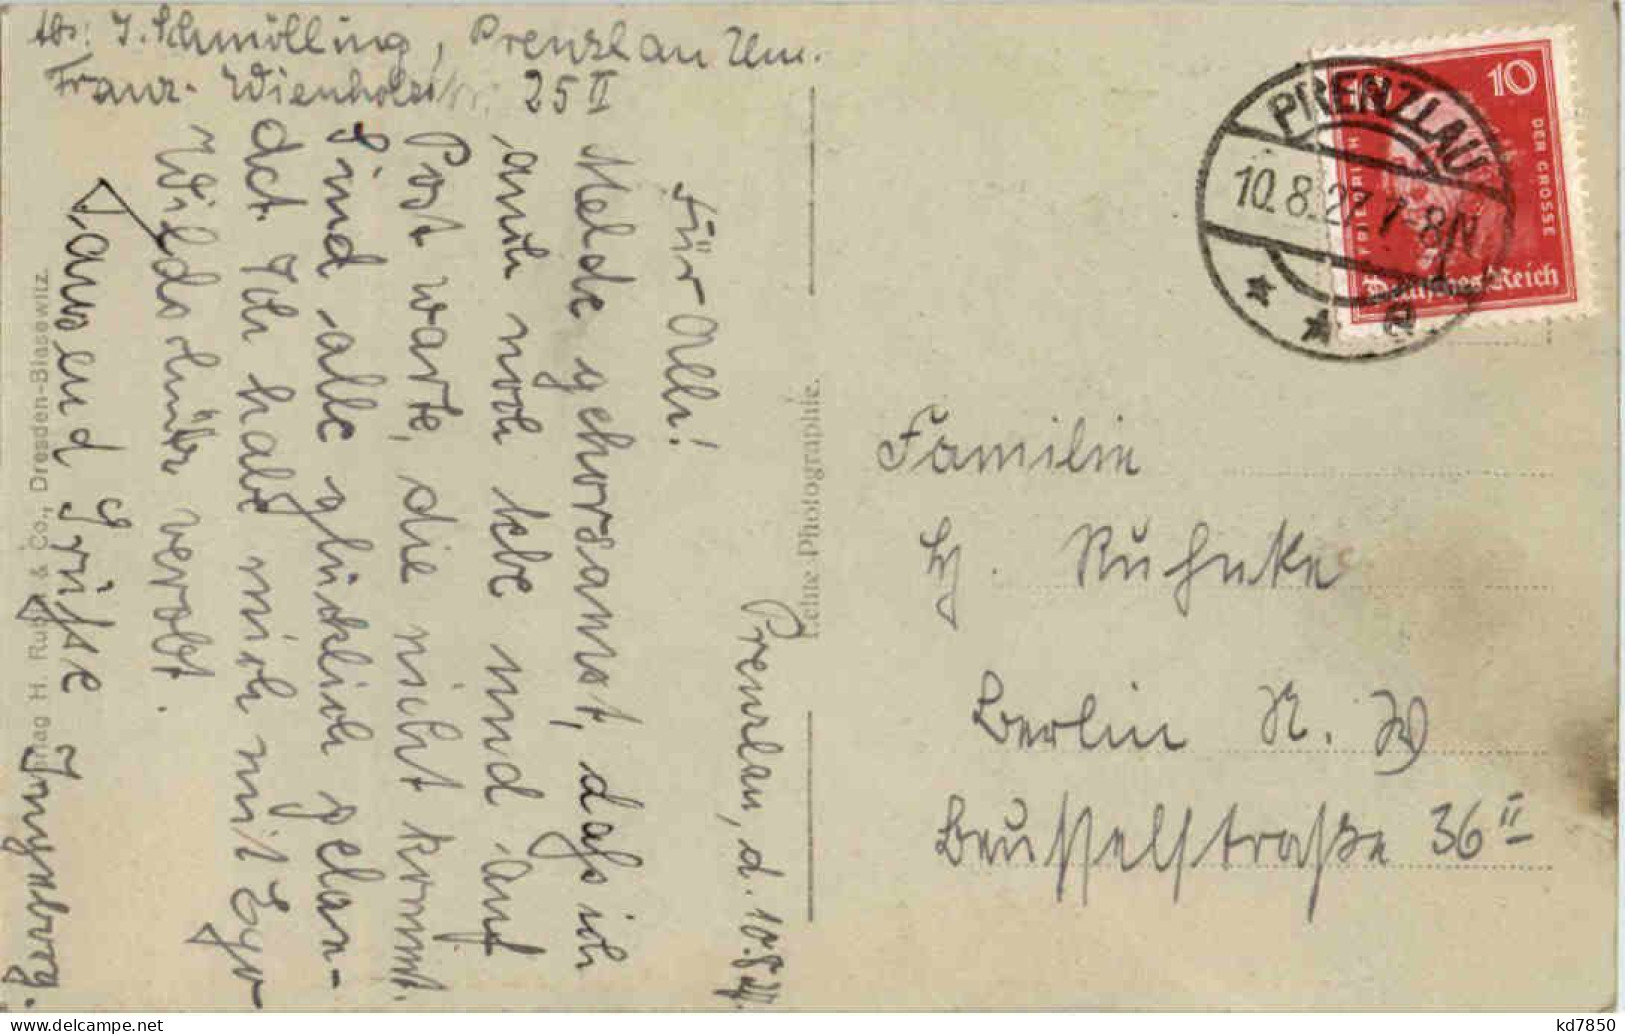 Abs: J. Schmölling, Prenzlau Um.
Franz-Wienholzstr. 25 II
Prenzlau, d. 10.8.27.
Für Olli!
Melde gehorsamst, dass ich
auch noch lebe und auf
Post warte, die nicht kommt.
Sind alle glücklich gelan-
det. Ich habe mich mit Egor
verobt.
Tausend Grüsse
Verlag H. Rubin & Co., Dresden-Blasewitz.
Echte Photographie.
PRENZLAU
10.8.27.7-8N
* * e
10
FRIEDRICH DER GROSSE
Deutsches Reich
Familie
H. Ruhnke
Berlin N. W
Brusselstraße 36 II
kd7850